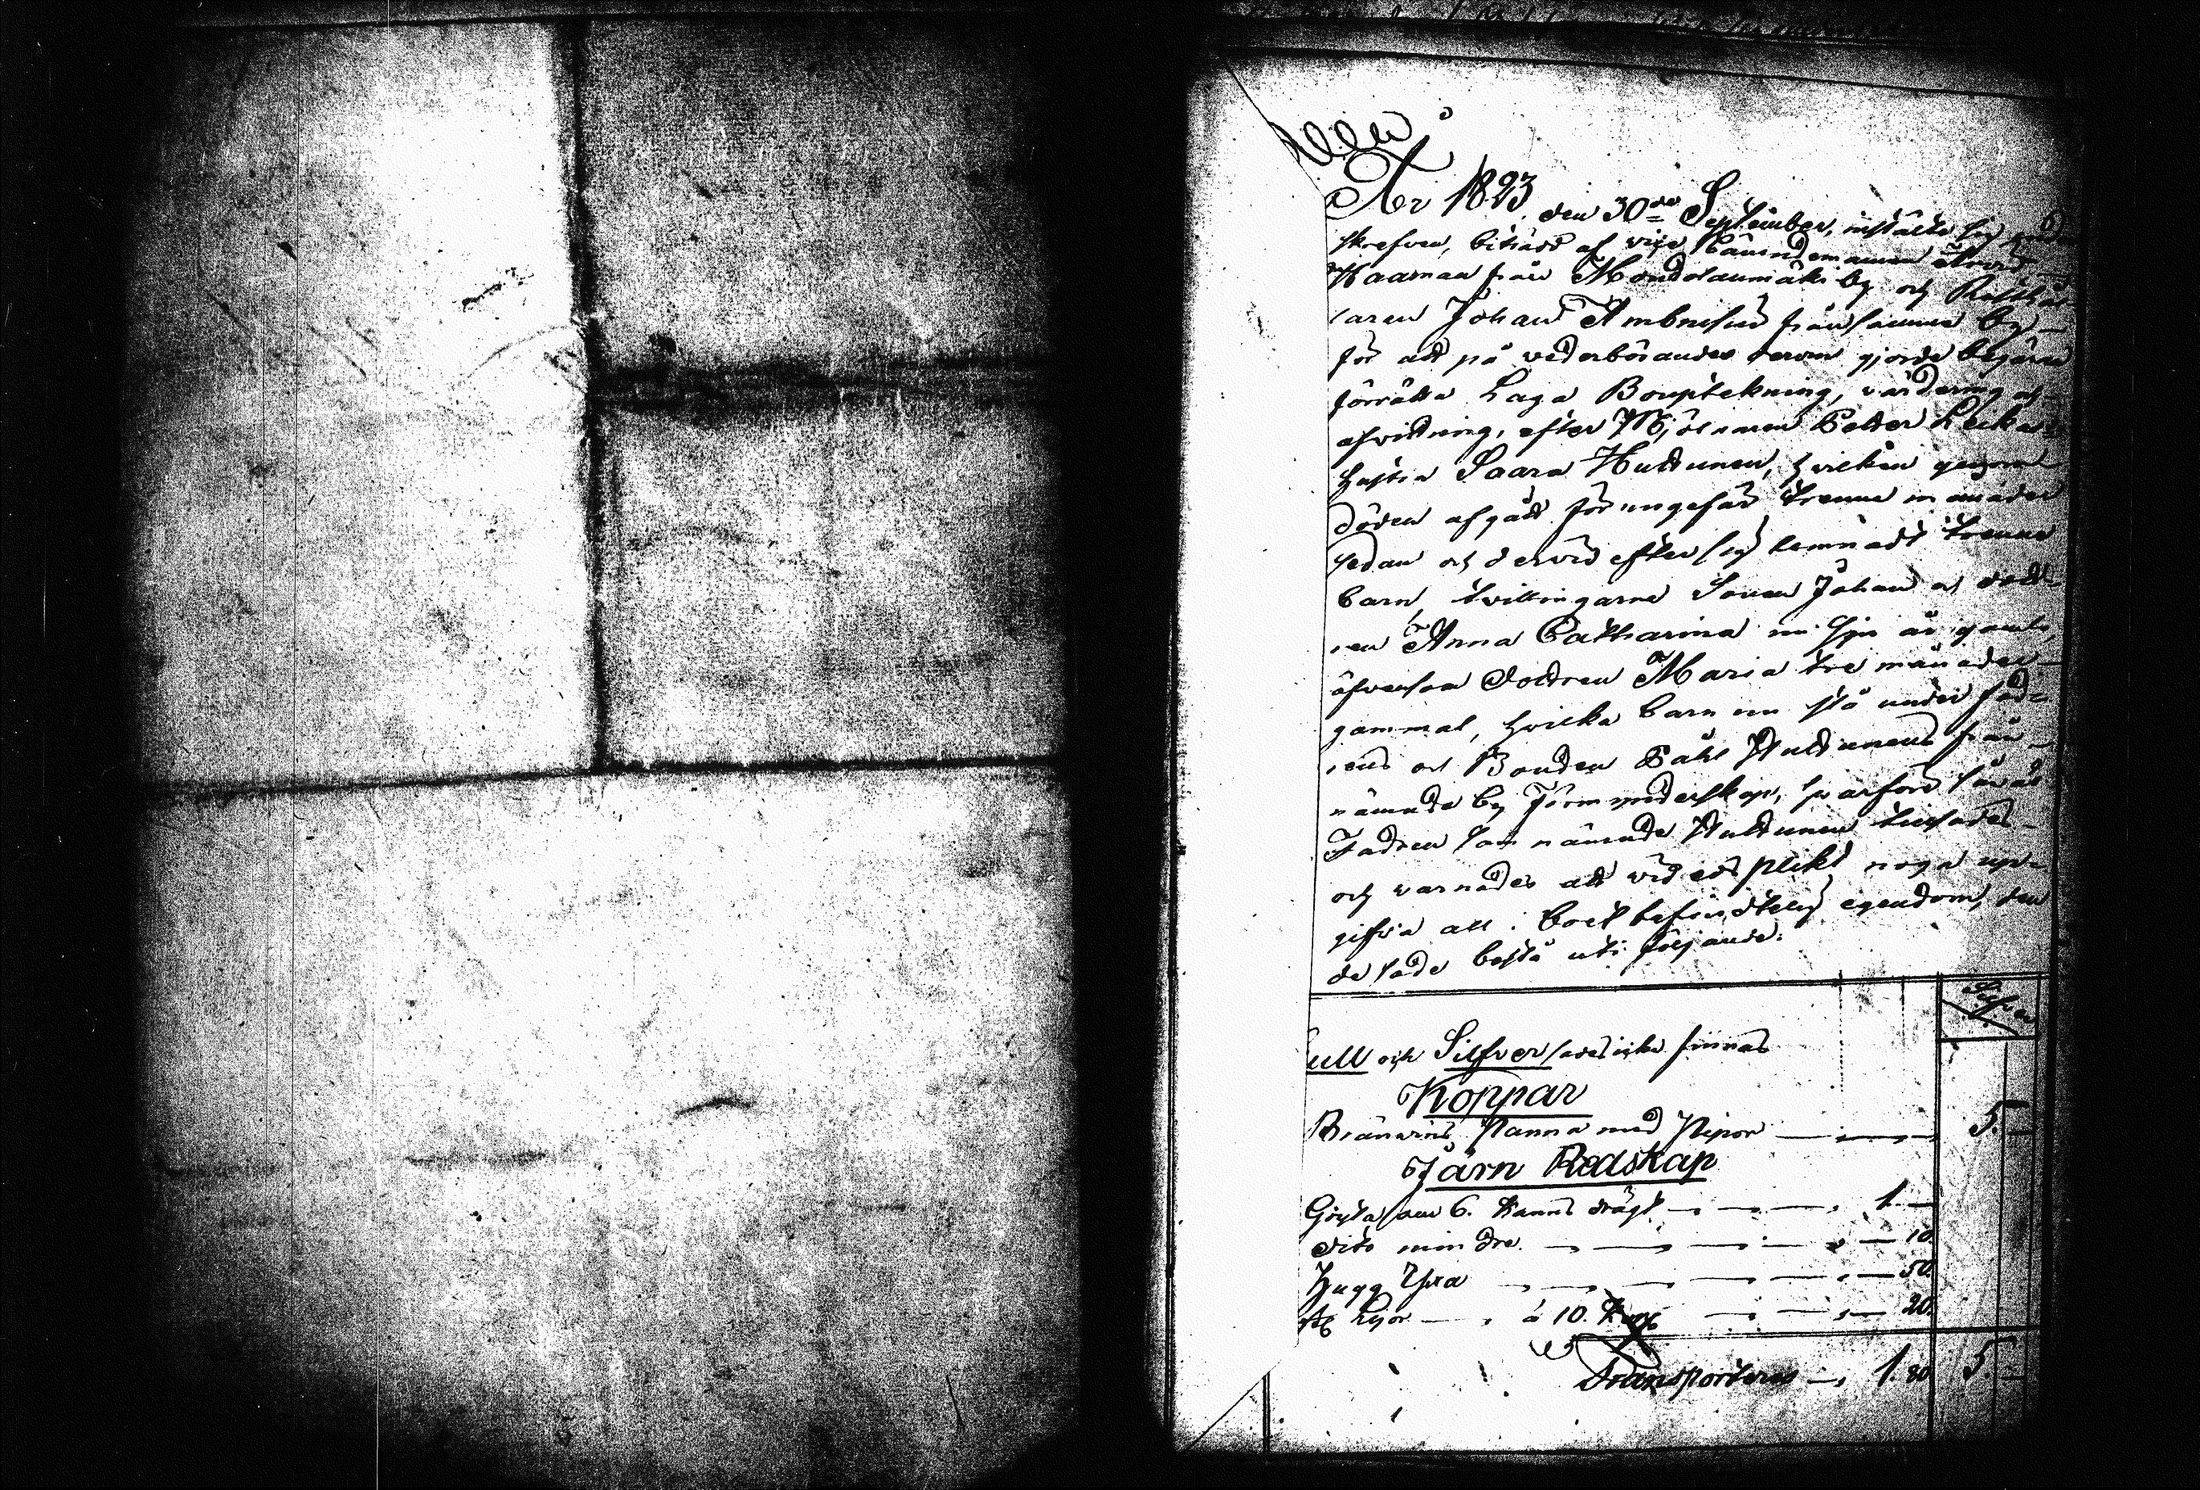 År 1823 den 30de September, instälte sig under
skrefven, biträdd af vice Länsndemannen
Haaman från Mondolanmäki by och
laren Johan Ambrosius från samma by
för att på vederbörandes derom gjorde begäran
förrätta Laga Bouptekning, värdering och
afvittring, efter Mjölnaren Petter
hustru Saara Huttunen, hvilken genom
döden afgått för ungefär trenne månader
sedan och dervid efter sig lemnadt trenne
barn, tvillingarne Sonen Johan och dott-
ren Anna Catharina nu sju år gamla,
äfvensom dottren Maria tre månader
gammal, hvilka barn nu stå under fad-
rens och Bonden Påhl Huttunens från
nämnde by Förmynderskap, hvarföre såväl
Fadren som nämnde Huttunen tillsades
och varnades att vid eds plikt noga up-
gifva all i boet befintelig egendom, den
de sade bestå uti följande:
Silfver
ull och Silfver sades icke finnas
Koppar
Bränvins Panna med Pipor 5.
Järn Redskap
Gryta om 6. kanns drägt 1.
dito mindre 10.
Hugg Yxa 50.
st Lijor à 10. 20.
Transporteres 1. 80 5.